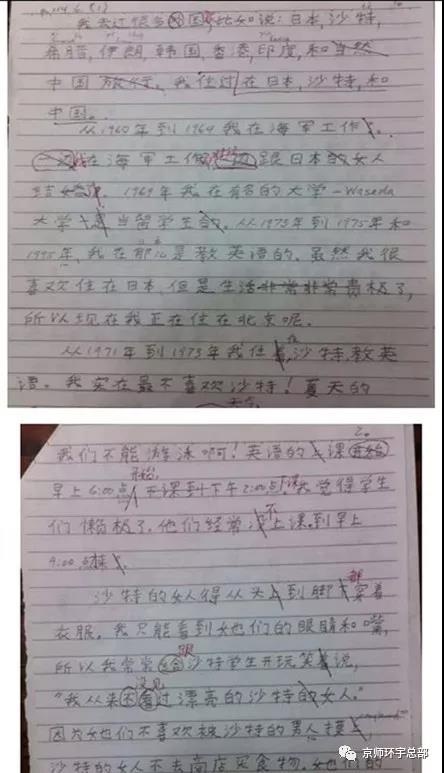 我去过很多外国,比如说:日本,沙特,
希腊,伊朗,韩国,香港,印度,和当然
中国旅行。我住过在日本,沙特,和
中国。
从1960年到1964我在海军工作
在海军工作 跟日本的女人
结婚 1969年我在有名的大学-Waseda
大学 当留学生的。从1973年到1975年和
1995年,我在那儿是教英语的。虽然我很
喜欢住在日本,但是生活非常非常贵极了,
所以现在我正在住在北京呢。
从1971年到1973年我住着沙特,教英
语。我实在最不喜欢沙特!夏天的
我们不能游泳啊!英语的 课开始
早上6:00点 下课到下午2:00点 觉得学生
们懒极了,他们经常没上课到早上
9:00点
沙特的女人得从头上到脚 穿着
衣服。我只能看到她们的眼睛和嘴,
所以我常常给沙特学生开玩笑着说,
"我从来不看过漂亮的沙特的女人."
因为她们不喜欢被沙特的男人摸
沙特的女人不去商店买食物.她们的
京师环宇总部